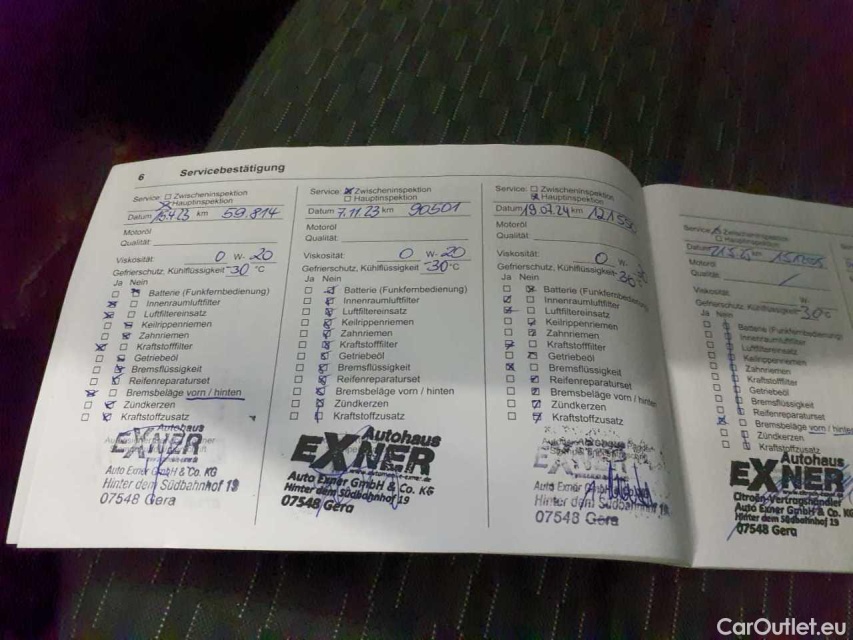 6 Servicebestätigung
Service: Zwischeninspektion
Hauptinspektion
Datum km 59.814
Motoröl
Qualität:
Viskosität: 0 W- 20
Gefrierschutz, Kühlflüssigkeit -30 °C
Ja Nein
Batterie (Funkfernbedienung)
Innenraumluftfilter
Luftfiltereinsatz
Keilrippenriemen
Zahnriemen
Kraftstofffilter
Getriebeöl
Bremsflüssigkeit
Reifenreparaturset
Bremsbeläge vorn / hinten
Zündkerzen
Kraftstoffzusatz
EXNER
Auto Exner GmbH & Co. KG
Hinter dem Südbahnhof 19
07548 Gera
Service: Zwischeninspektion
Hauptinspektion
Datum 7.11.23 km 90501
Motoröl
Qualität:
Viskosität: 0 W- 20
Gefrierschutz, Kühlflüssigkeit -30°C
Ja Nein
Batterie (Funkfernbedienung)
Innenraumluftfilter
Luftfiltereinsatz
Keilrippenriemen
Zahnriemen
Kraftstofffilter
Getriebeöl
Bremsflüssigkeit
Reifenreparaturset
Bremsbeläge vorn / hinten
Zündkerzen
Kraftstoffzusatz
Autohaus
EXNER
Auto Exner GmbH & Co. KG
Hinter dem Südbahnhof 19
07548 Gera
Service: Zwischeninspektion
Hauptinspektion
Datum 19.07.24 km
Motoröl
Qualität:
Viskosität: 0
Gefrierschutz, Kühlflüssigkeit
Ja Nein
Batterie (Funkfernbedienung)
Innenraumluftfilter
Luftfiltereinsatz
Keilrippenriemen
Zahnriemen
Kraftstofffilter
Getriebeöl
Bremsflüssigkeit
Reifenreparaturset
Bremsbeläge vorn / hinten
Zündkerzen
Kraftstoffzusatz
EXNER
Auto Exner
Hinter dem Südbahnhof
07548 Gera
Service: Zwischeninspektion
Hauptinspektion
Datum km
Motoröl
Qualität:
Viskosität: W-
Gefrierschutz, Kühlflüssigkeit -30°C
Ja Nein
Batterie (Funkfernbedienung)
Innenraumluftfilter
Luftfiltereinsatz
Keilrippenriemen
Zahnriemen
Kraftstofffilter
Getriebeöl
Bremsflüssigkeit
Reifenreparaturset
Bremsbeläge vorn / hinten
Zündkerzen
Kraftstoffzusatz
Autohaus
EXNER
Citroën-Vertragshändler
Auto Exner GmbH & Co. KG
Hinter dem Südbahnhof 19
07548 Gera
CarOutlet.eu